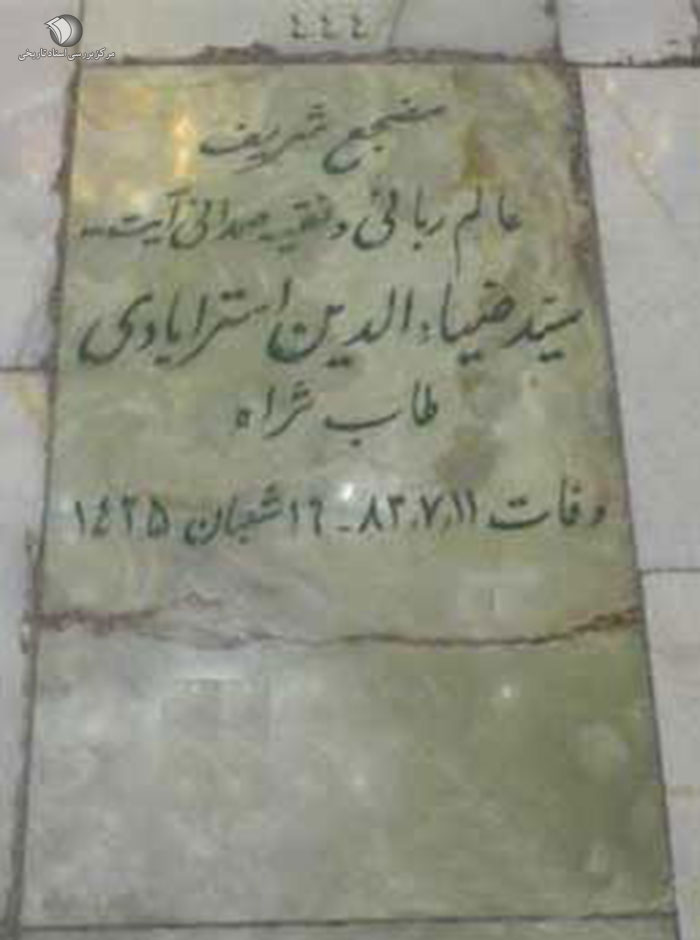 مرکز بررسی اسناد تاریخی
٤٤٤
مضجع شریف
عالم ربانی و فقیه صمدانی آیت...
سید ضیاء الدین استرابادی
طاب ثراه
وفات ٨٣،٧،١١ - ١٦ شعبان ١٤٢٥